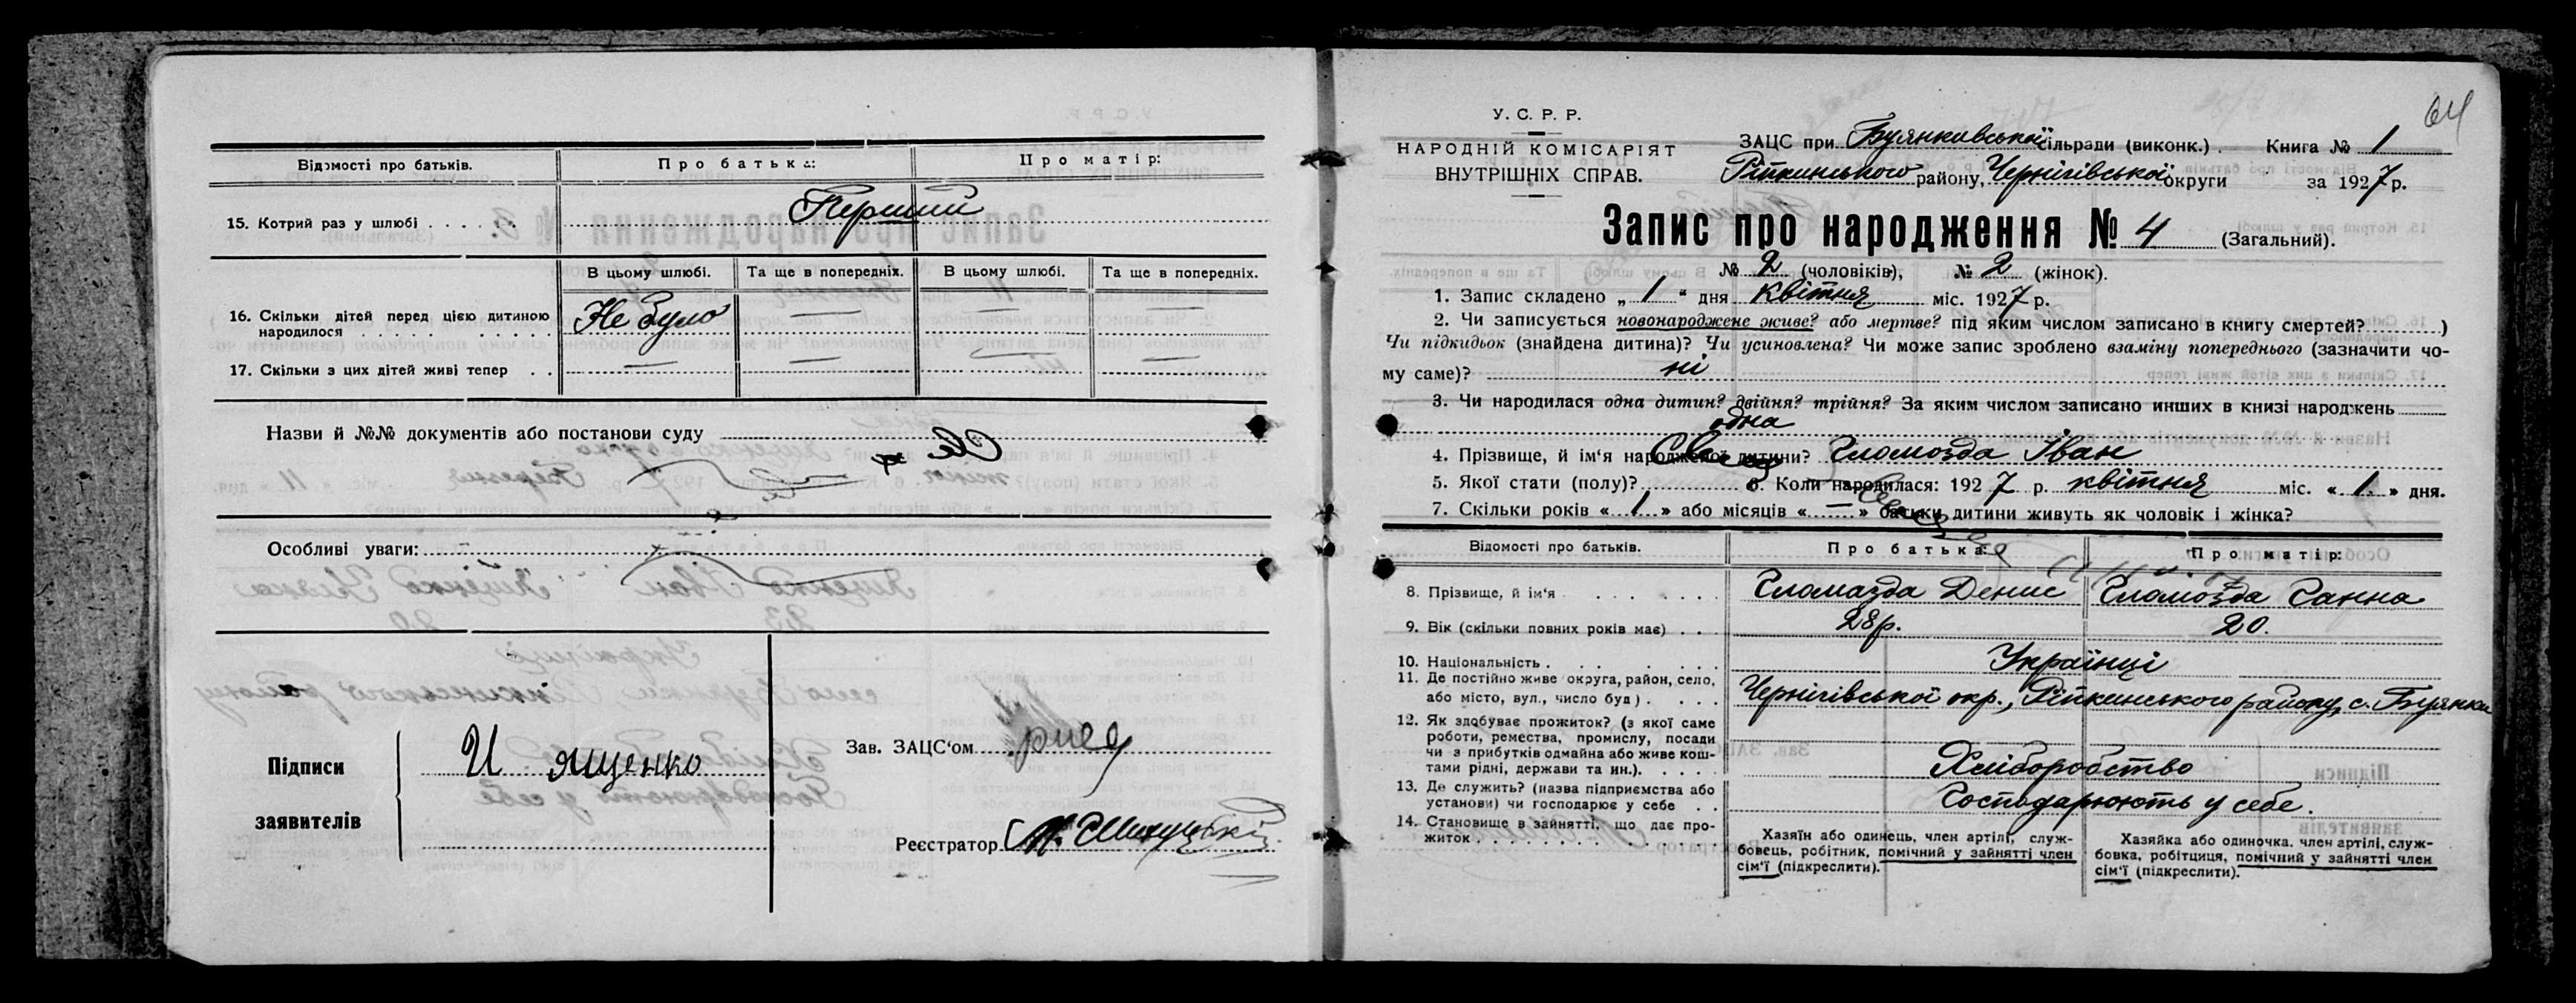 Відомості про батьків.
Про батька:
Про матір:
15. Котрий раз у шлюбі
Перший
В цьому шлюбі.
Та ще в попередніх.
В цьому шлюбі.
Та ще в попередніх.
16. Скільки дітей перед цією дитиною
народилося
Не було
—
—
—
17. Скільки з цих дітей живі тепер
—
—
—
—
Назви й №№ документів або постанови суду
Особливі уваги:
Підписи
заявителів
И ященко
Зав. ЗАЦС'ом
Реєстратор
64
У. С. Р. Р.
НАРОДНІЙ КОМІСАРІЯТ
ВНУТРІШНІХ СПРАВ.
ЗАЦС при Буянкивської сільради (виконк.). Книга № 1
Ріпкинського району, Чернігівської округи за 1927 р.
Запис про народження № 4 (Загальний).
№ 2 (чоловіків), № 2 (жінок).
1. Запис складено „ 1 “ дня квітня міс. 1927 р.
2. Чи записується новонароджене живе? або мертве? під яким числом записано в книгу смертей? )
Чи підкидьок (знайдена дитина)? Чи усиновлена? Чи може запис зроблено взаміну попереднього (зазначити чо-
му саме)? ні
3. Чи народилася одна дитин? двійня? трійня? За яким числом записано инших в книзі народжень
одна
4. Прізвище, й ім'я народженої дитини? Гломозда Іван
5. Якої стати (полу)? 6. Коли народилася: 1927 р. квітня міс. « 1 » дня.
7. Скільки років « 1 » або місяців « — » батьки дитини живуть як чоловік і жінка?
Відомості про батьків.
Про батька:
Про матір:
8. Прізвище, й ім'я
Гломазда Денис
Гломозда Ганна
9. Вік (скільки повних років має)
28р.
20.
10. Національність
Українці
11. Де постійно живе округа, район, село,
або місто, вул., число буд)
Чернігівської окр., Ріпкинського району, с. Буянки
12. Як здобуває прожиток? (з якої саме
роботи, ремества, промислу, посади
чи з прибутків одмайна або живе кош-
тами рідні, держави та ин.).
Хліборобство
13. Де служить? (назва підприємства або
установи) чи господарює у себе
Господарюють у себе.
14. Становище в зайнятті, що дає про-
житок
Хазяїн або одинець, член артілі, служ-
бовець, робітник, помічний у зайнятті член
сім'ї (підкреслити).
Хазяйка або одиночка, член артілі, служ-
бовка, робітциця, помічний у зайнятті член
сім'ї (підкреслити).